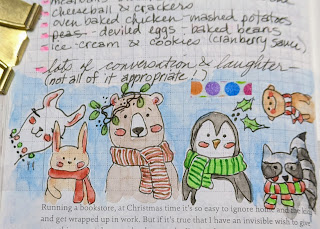 cheeseball & crackers
oven baked chicken - mashed potatoes
peas - deviled eggs - baked beans
ice cream & cookies (cranberry sauce)
lots of conversation & laughter
(not all of it appropriate!)
Running a bookstore, at Christmas time it's so easy to ignore home and the kids
and get wrapped up in work. But if it's true that I have an invisible wish to give